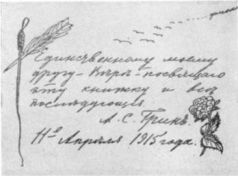 Единственному моему
другу – Вере – посвящаю
эту книжку и все
последующія.
А. С. Гринъ.
11го Апреля 1915 года.